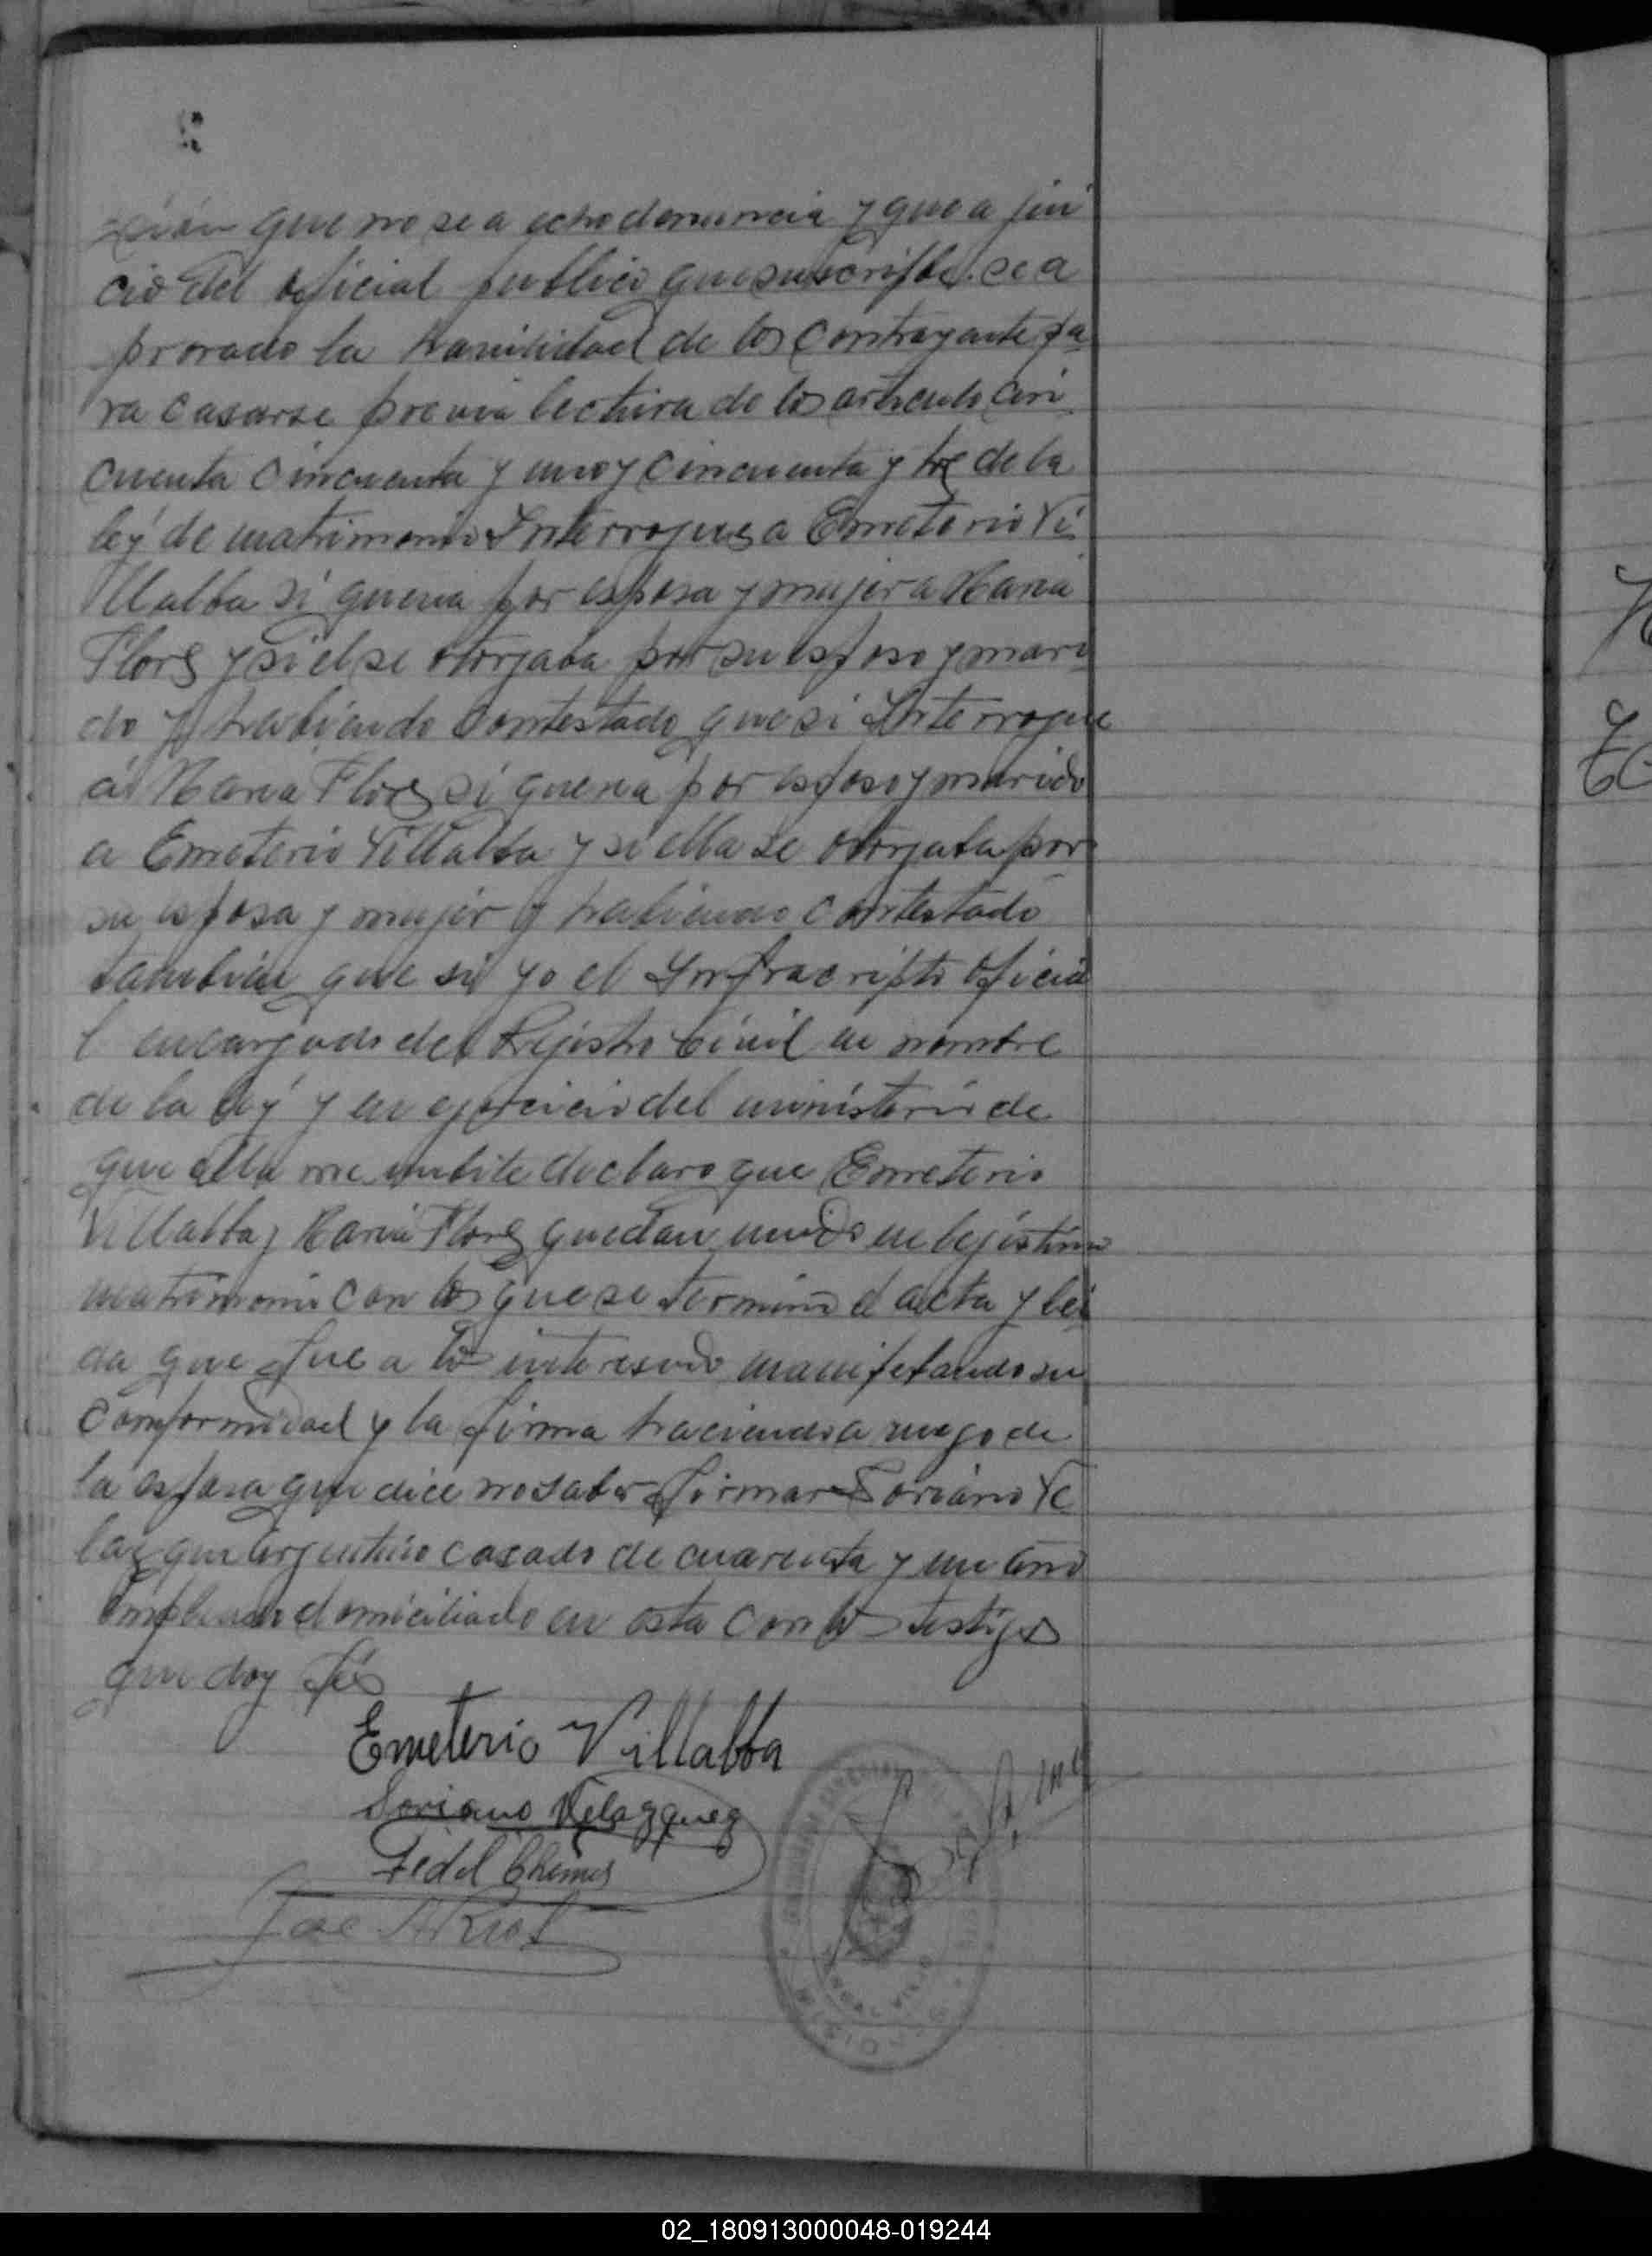 que no se a echo denuncia y que a jui
cio del oficial publico que suscribe. se a
provado la havilidad de los contrayante pa
ra casarse previa lectura de los articulo cin
cuenta cincuenta y uno y cincuenta y tres de la
ley de matrimonio Interrogue a Emeterio Vi
llalba si queria por esposa y mujer a Maria
Flores y si el se otorgaba por su esposo y mari
do y habiendo contestado que si Interrogue
a Maria Flores si queria por esposo y marido
a Emeterio Villalba y si ella se otorgaba por
su esposa y mujer y habiendo contestado
tambien que si yo el Infracripto oficia
l encargado del Rejistro Civil en nombre
de la ley y en ejercicio del ministerio de
que ella me declaro que Emeterio
Villalba y Maria Flores quedan unido en lejistimo
matrimonio con los que se termino el acta y lei
da que fue a los interesado manifetando su
conformidad y la firma haciendo a ruego de
la esposa que dice no saber firmar Soriano Ve
lazque argentino casado de cuarenta y un año
empleado domiciliado en esta con los testigos
que doy fé
Emeterio Villalba
Soriano Velazquez
Fidel Chemes
Jose A Riol
02_180913000048-019244